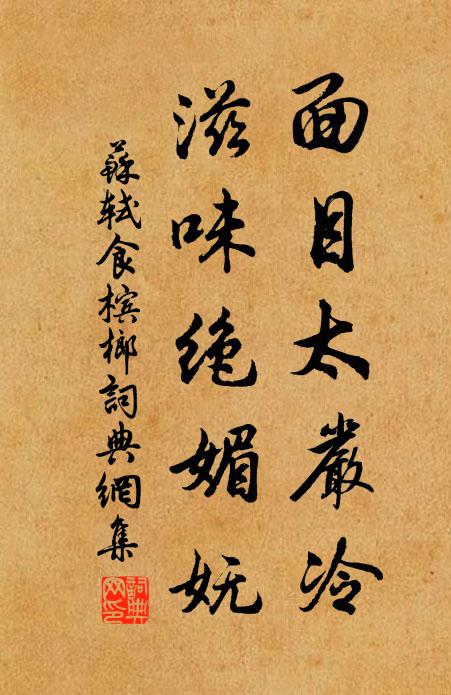 面目太嚴冷
滋味絶媚妩
蘇軾食檳榔詞典網集
詞典网印